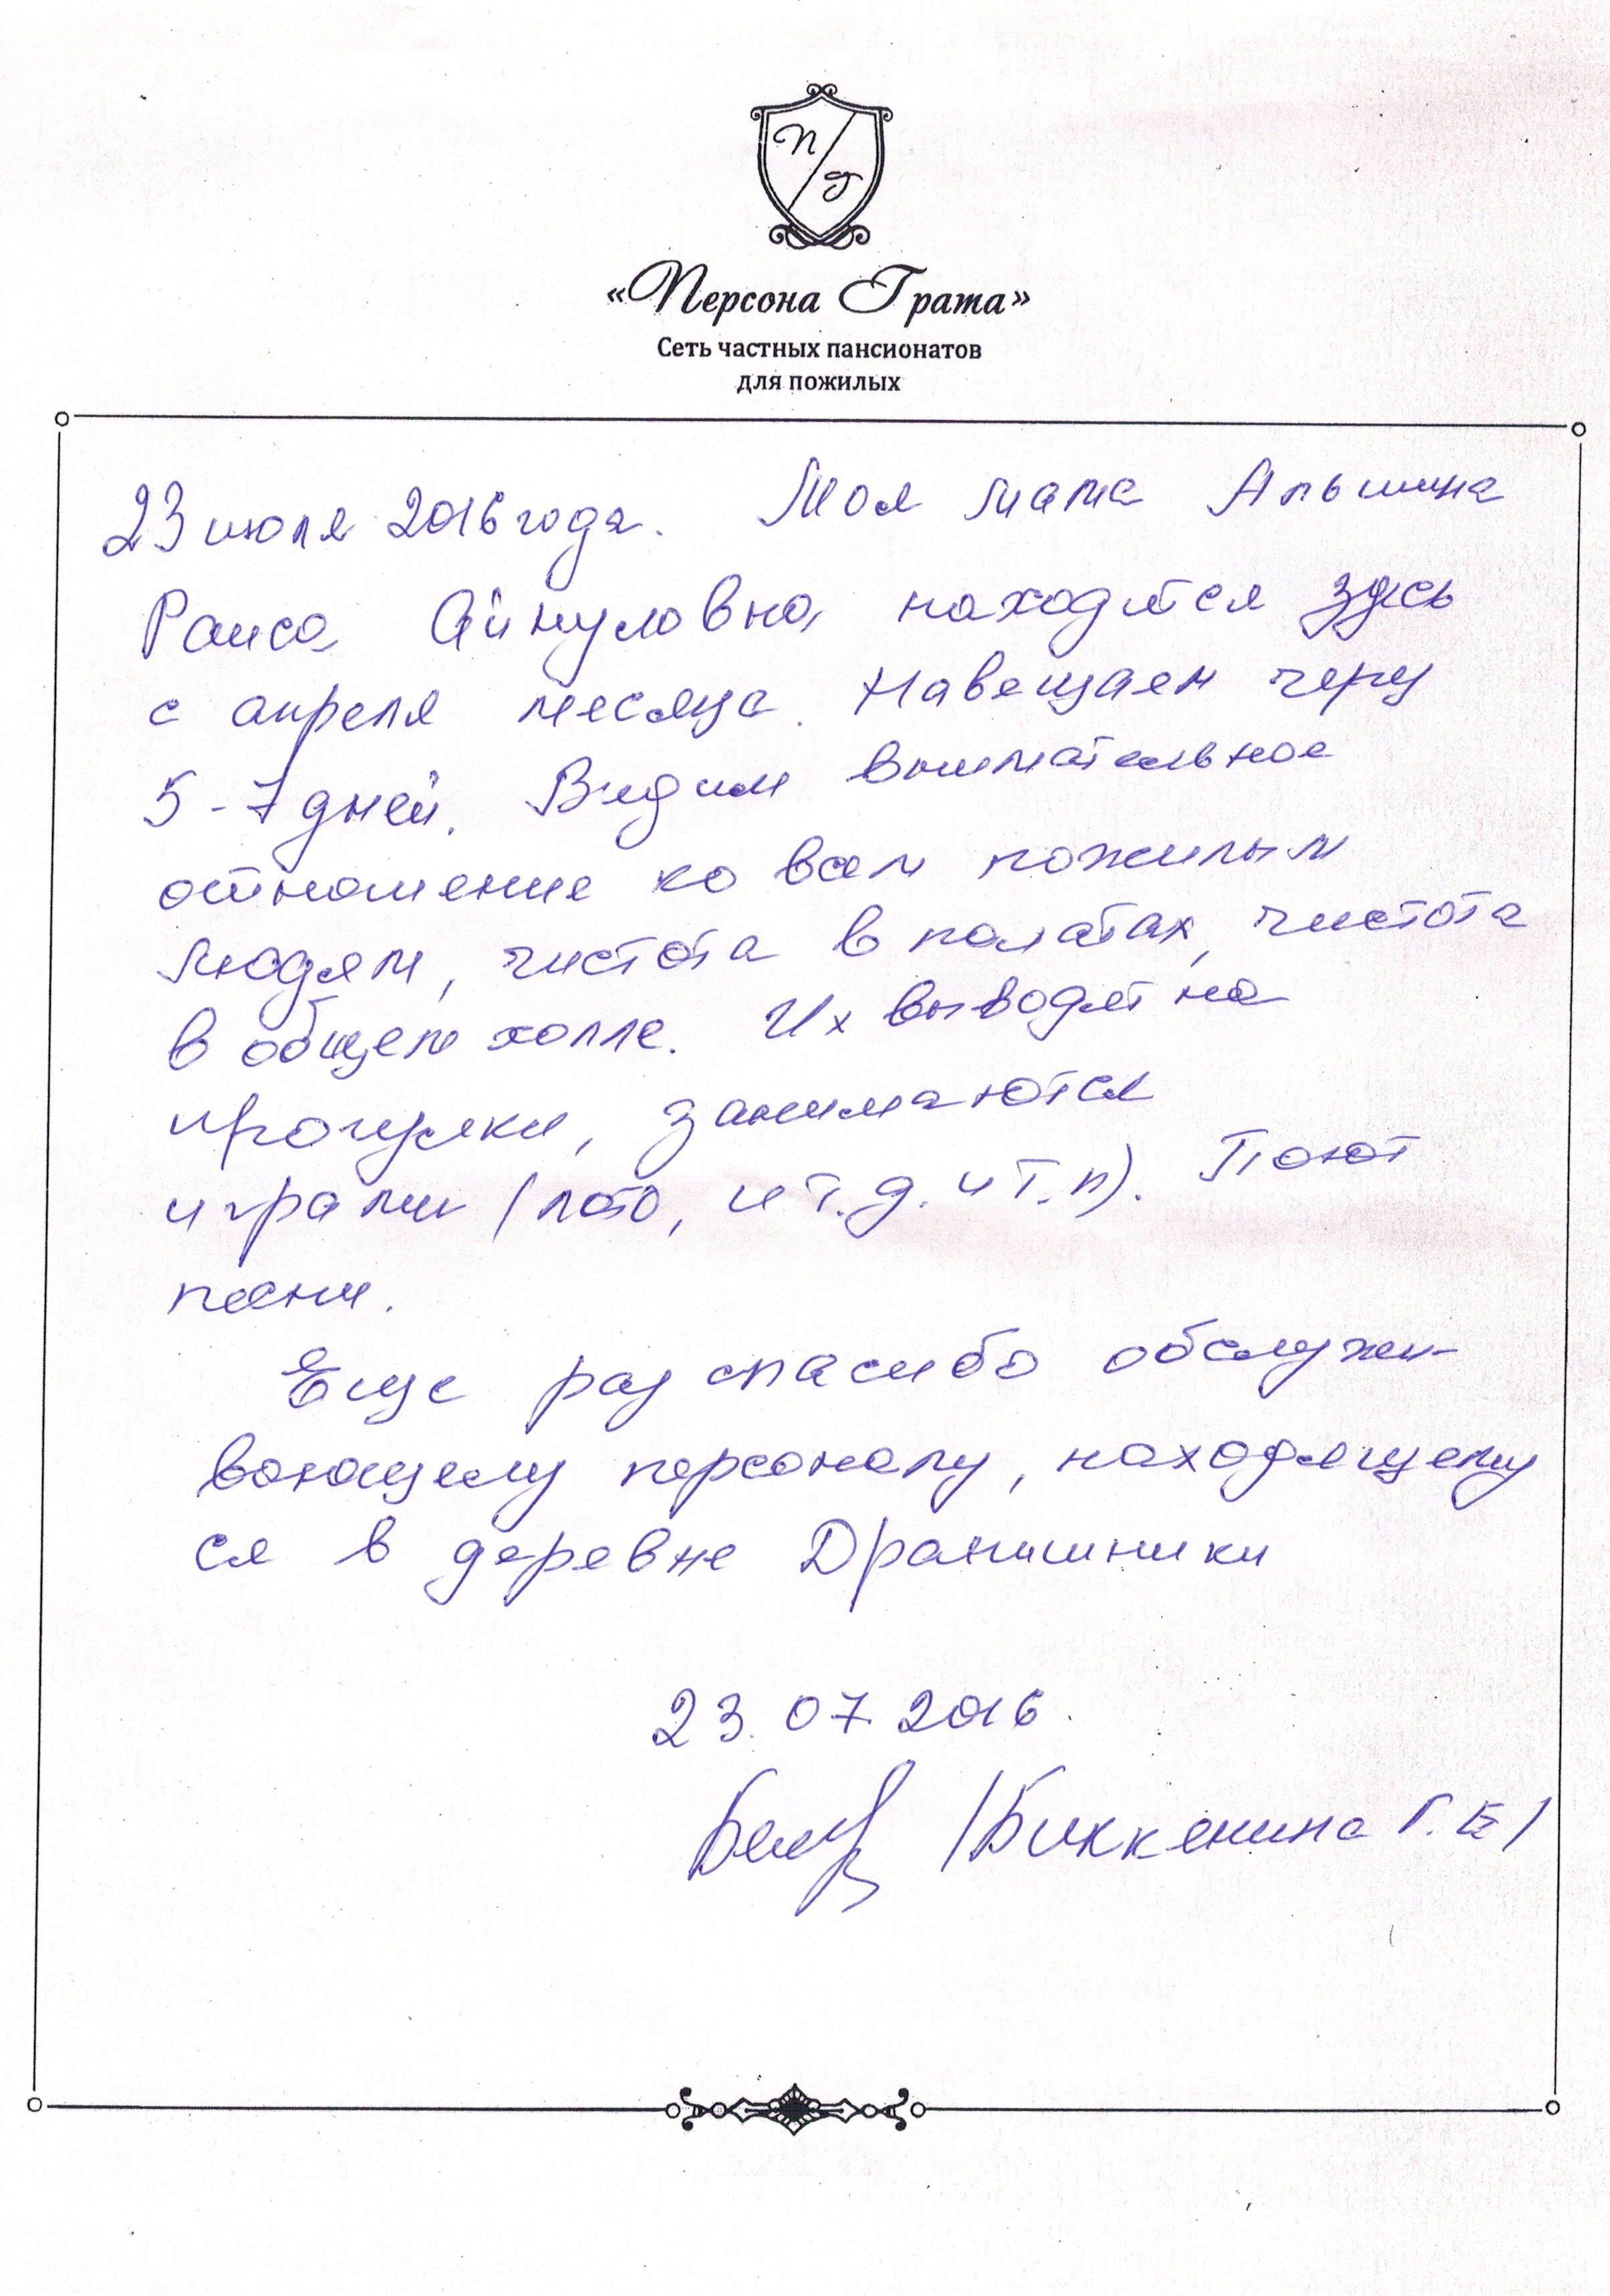 П
Г
«Персона Грата»
Сеть частных пансионатов
для пожилых
23 июля 2016 года. Моя мама Альшина
Раиса Айнуловна находятся здесь
с апреля месяца. Навещаем через
5-7 дней. Видим внимательное
отношение ко всем пожилым
людям, чистота в палатах, чистота
в общем холле. Их выводят на
прогулки, занимаются
играми (лото, и т.д. и т.п). Поют
песни.
Еще раз спасибо обслужи-
вающему персоналу, находящему
ся в деревне Дранишники
23.07.2016.
/Биккенина Г.Е/